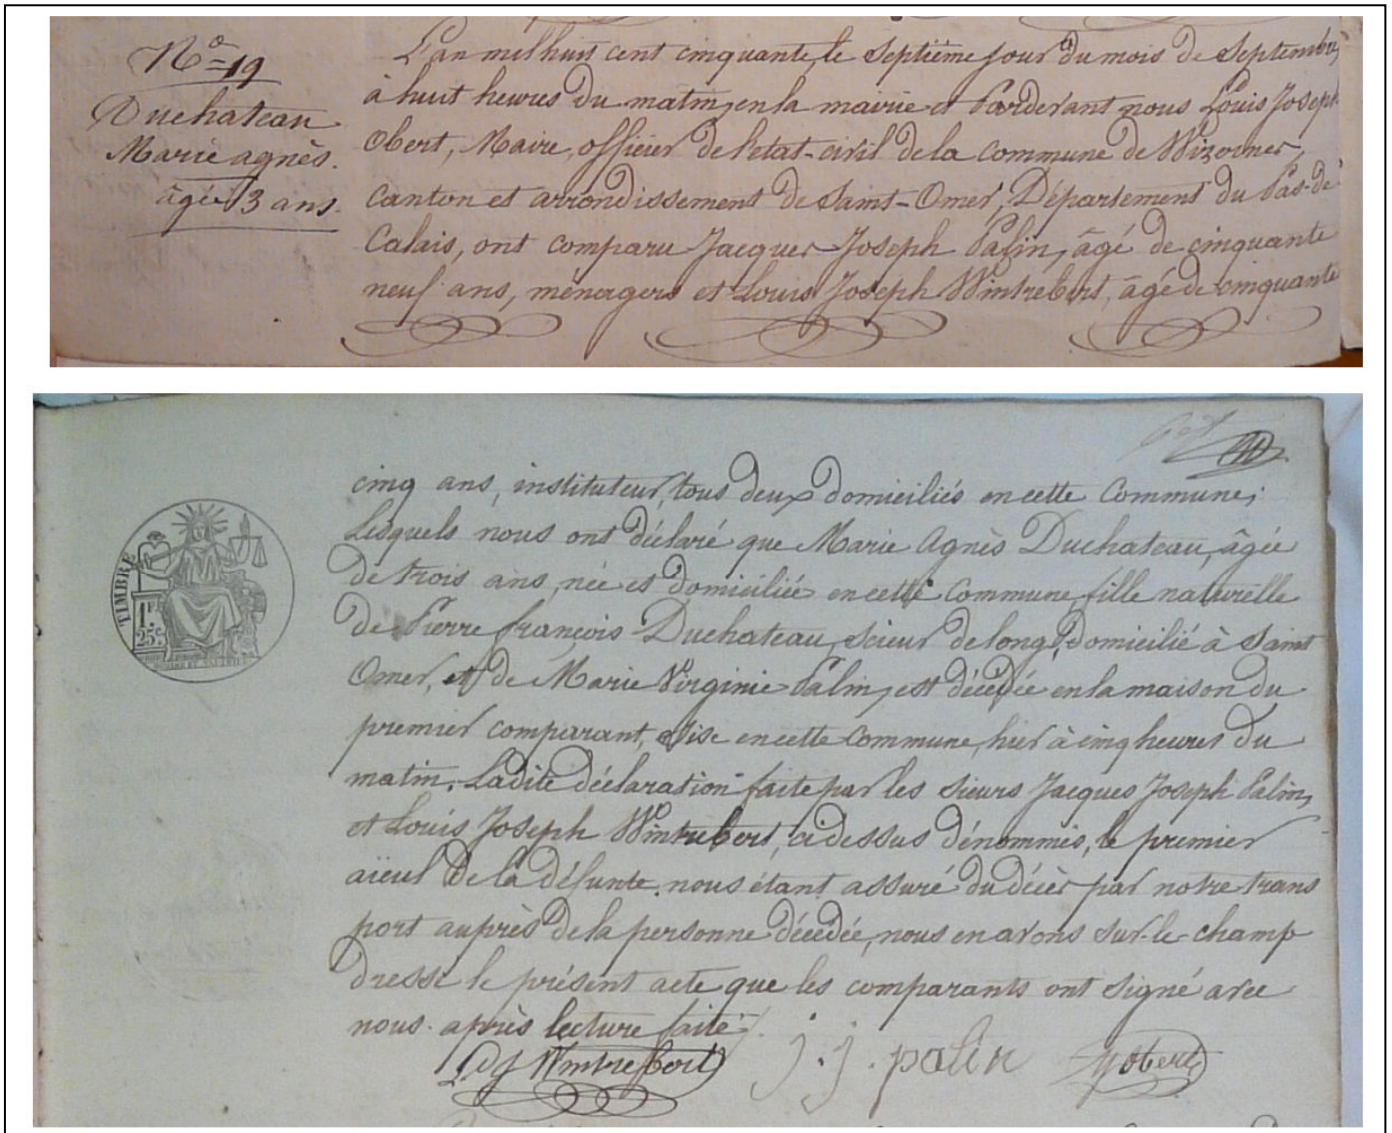 N° 19
Duchateau
Marie agnès.
âgée 3 ans.
L'an mil huit cent cinquante, le Septième jour du mois de Septembre,
à huit heures du matin, en la mairie et Pardevant nous Louis Joseph
Obert, Maire, officier de l'etat-civil de la commune de Wizernes,
canton et arrondissement de Saint-Omer, Département du Pas-de
Calais, ont comparu Jacques Joseph Palin, âgé de cinquante
neuf ans, ménagers et Louis Joseph Wintrebert, âgé de cinquante
cinq ans, instituteur, tous deux domiciliés en cette Commune;
Lesquels nous ont déclaré que Marie Agnès Duchateau, âgée
de trois ans, née et domiciliée en cette Commune, fille naturelle
de Pierre françois Duchateau, scieur de long, domicilié à Saint
Omer, et de Marie Virginie Palin, est décédée en la maison du
premier comparant, sise en cette Commune, hier à cinq heures du
matin. Ladite déclaration faite par les sieurs Jacques Joseph Palin,
et Louis Joseph Wintrebert, ci dessus dénommés, le premier
aïeul de la défunte. nous étant assuré du décès par notre trans
port auprès de la personne décédée, nous en avons sur-le-champ
dressé le présent acte que les comparants ont signé avec
nous après lecture faite.
TIMBRE
1F.
25c.
L. J. Wintrebert j. j. palin obert